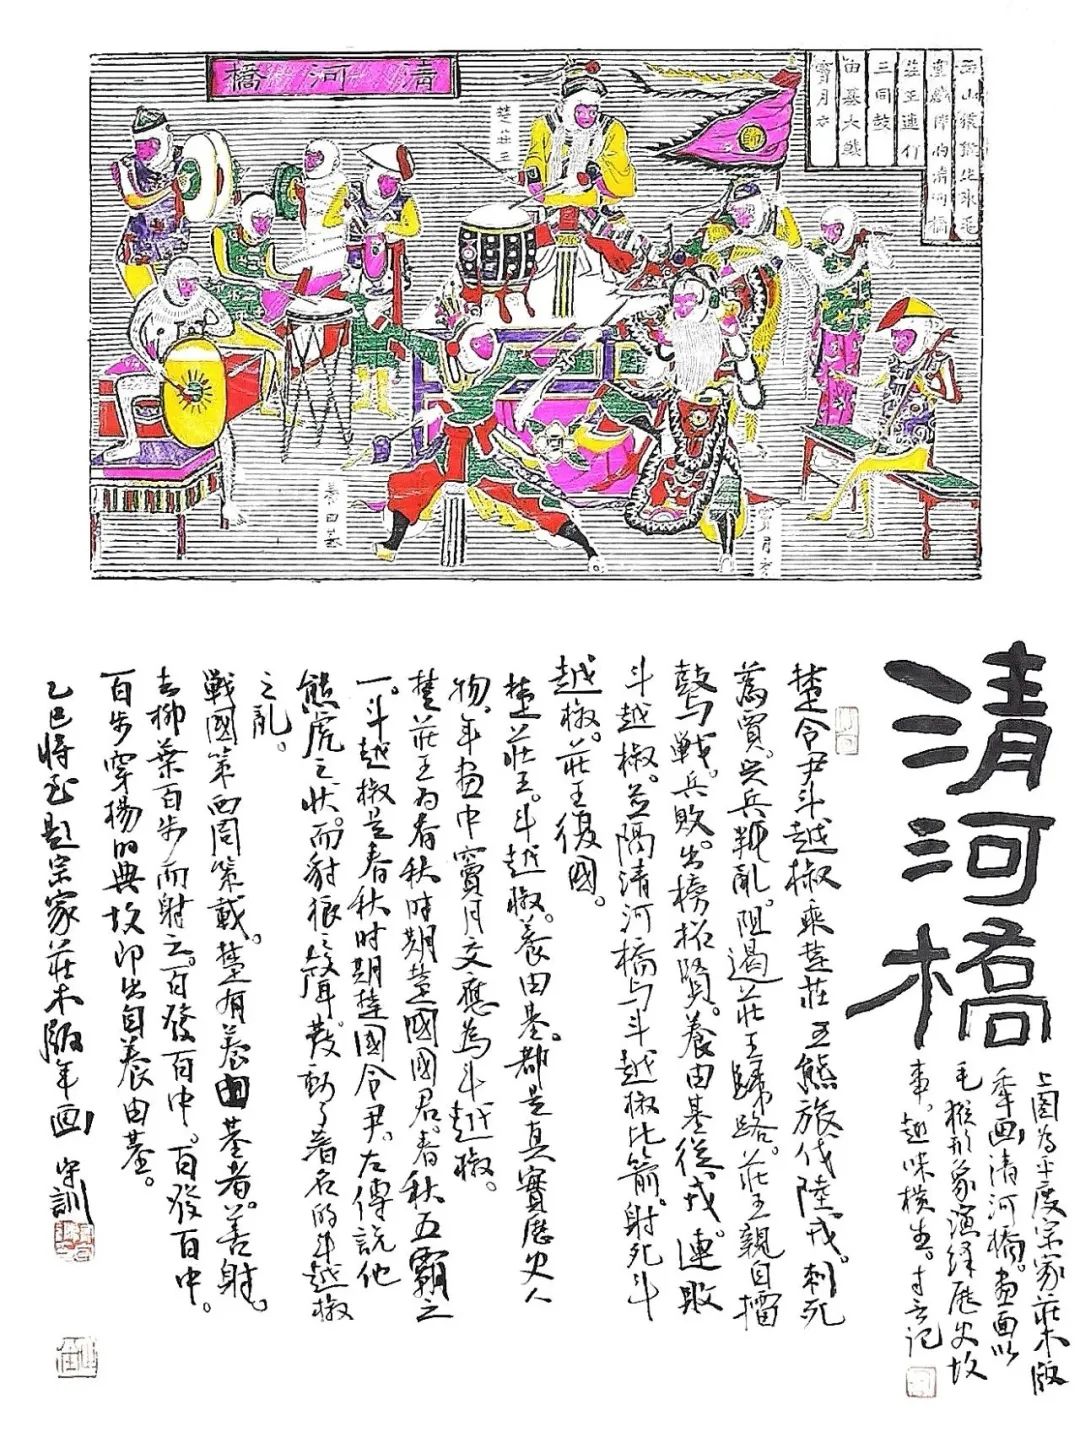 清河橋
楚莊王
養由基
竇月文
西山猿猴坐冰亀
臺戲传的清河橋
莊王連行
三同鼓
由基大戦
竇月文
清河橋
上圖為平度宗家莊木版
年画清河橋。画面以
毛猴形象演绎歷史故
事。趣味横生。守訓记
楚令尹斗越椒乘楚莊王熊旅伐陸戎。刺死
蒍賈。兴兵叛亂。阻遏莊王歸路。莊王親自擂
鼓与戰。兵敗。出榜招賢。養由基從戎。連敗
斗越椒。並隔清河橋与斗越椒比箭。射死斗
越椒。莊王復國。
楚莊王。斗越椒。養由基。都是真實歷史人
物。年画中竇月文應為斗越椒。
楚莊王为春秋時期楚國國君。春秋五霸之
一。斗越椒是春秋時期楚國令尹。左傳説他
熊虎之状。而豺狼之聲。發動了著名的斗越椒
之亂。
戦國策西周策載。楚有養由基者。善射。
去柳葉百步而射之。百發百中。百發百中。
百步穿楊的典故即出自養由基。
乙巳將至題宗家莊木版年画 守訓